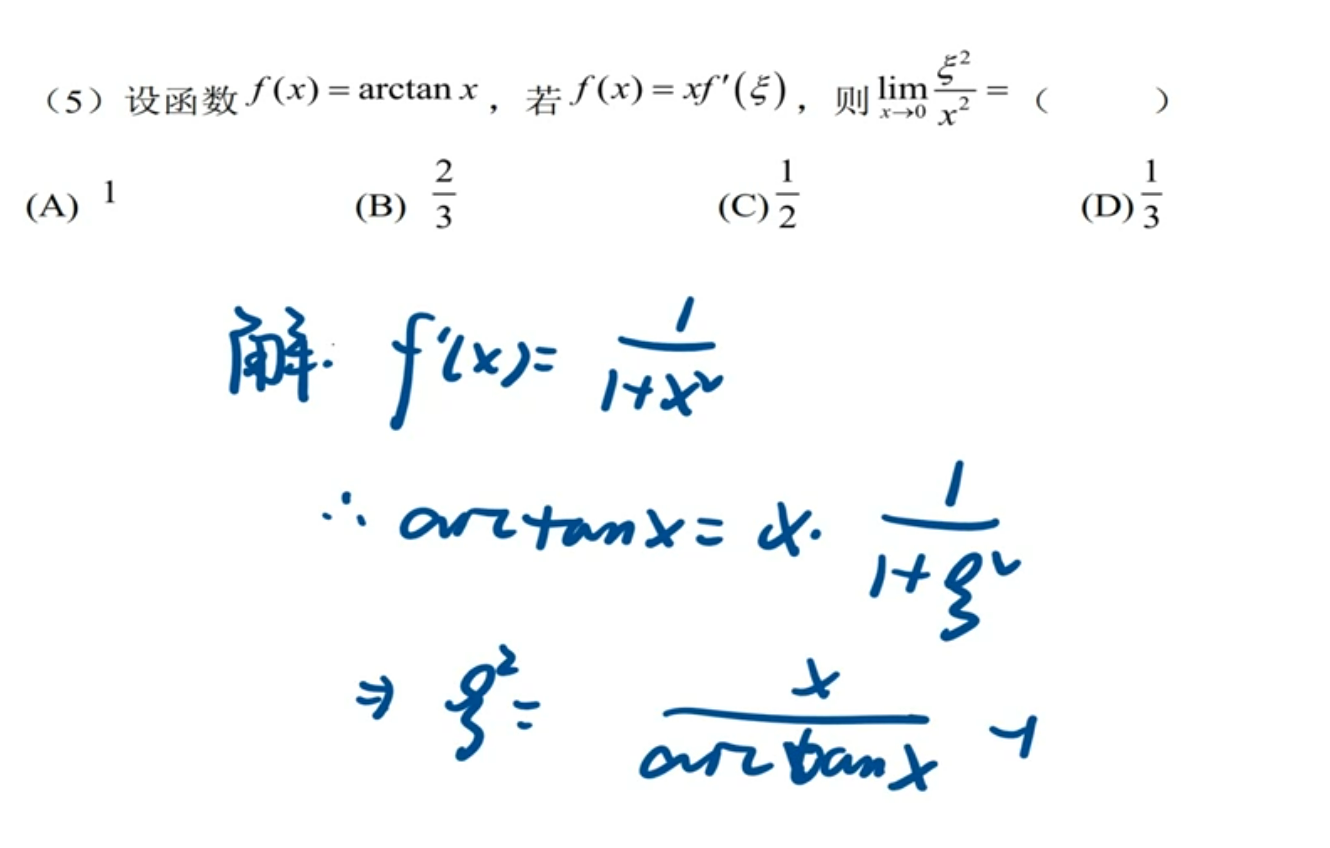 （5）设函数 f(x) = arctan x ，若 f(x) = xf′(ξ) ，则 lim_{x→0} ξ²/x² = （ ）
(A) 1 (B) 2/3 (C) 1/2 (D) 1/3
解. f'(x) = 1/(1+x²)
∴ arctanx = x · 1/(1+ξ²)
⇒ ξ² = x/arctanx -1